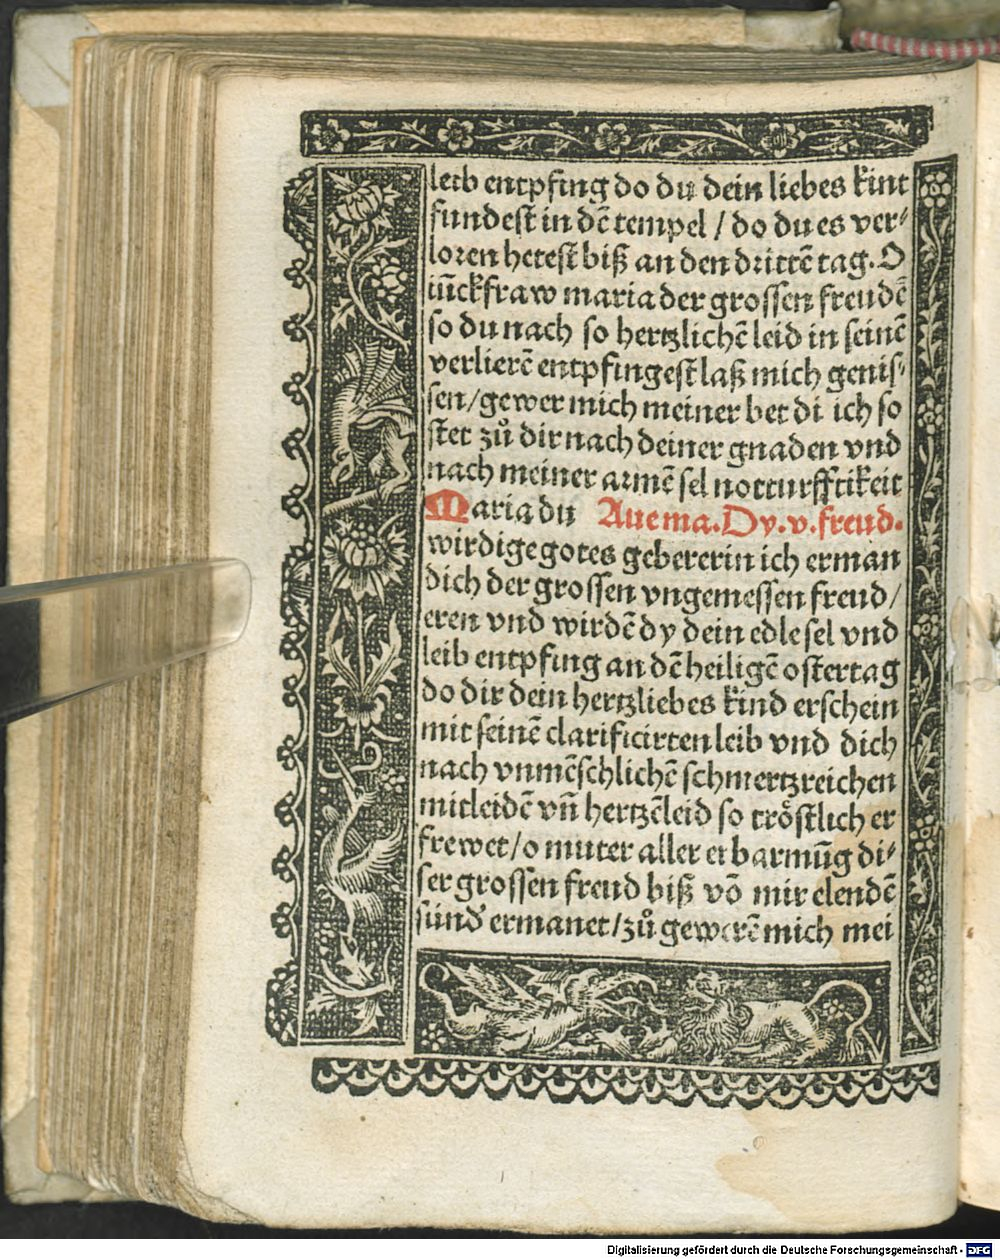 leib entpfing do du dein liebes kint
fundest in dē tempel / do du es ver⸗
loren hetest biß an den drittē tag. O
iūckfraw maria der grossen freudē
so du nach so hertzlichē leid in seinē
verlierē entpfingest laß mich genis⸗
sen / gewer mich meiner bet di ich so
stet zů dir nach deiner gnaden vnd
nach meiner armē sel notturfftikeit
Maria du Aue ma. Dy. v. freud.
wirdige gotes gebererin ich erman
dich der grossen vngemessen freud /
eren vnd wirdē dy dein edle sel vnd
leib entpfing an dē heiligē ostertag
do dir dein hertzliebes kind erschein
mit seinē clarificirten leib vnd dich
nach vnmēschlichē schmertzreichen
mitleidē vn̄ hertzēleid so trȯ̈stlich er
frewet / o muter aller erbarmūg di⸗
ser grossen freud biß vō mir elendē
sünd' ermanet / zů gewerē mich mei
Digitalisierung gefördert durch die Deutsche Forschungsgemeinschaft - DFG